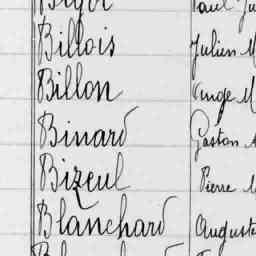 Billois Julien M
Billon Ange M
Binard Gaston
Bizeul Pierre M
Blanchard Auguste